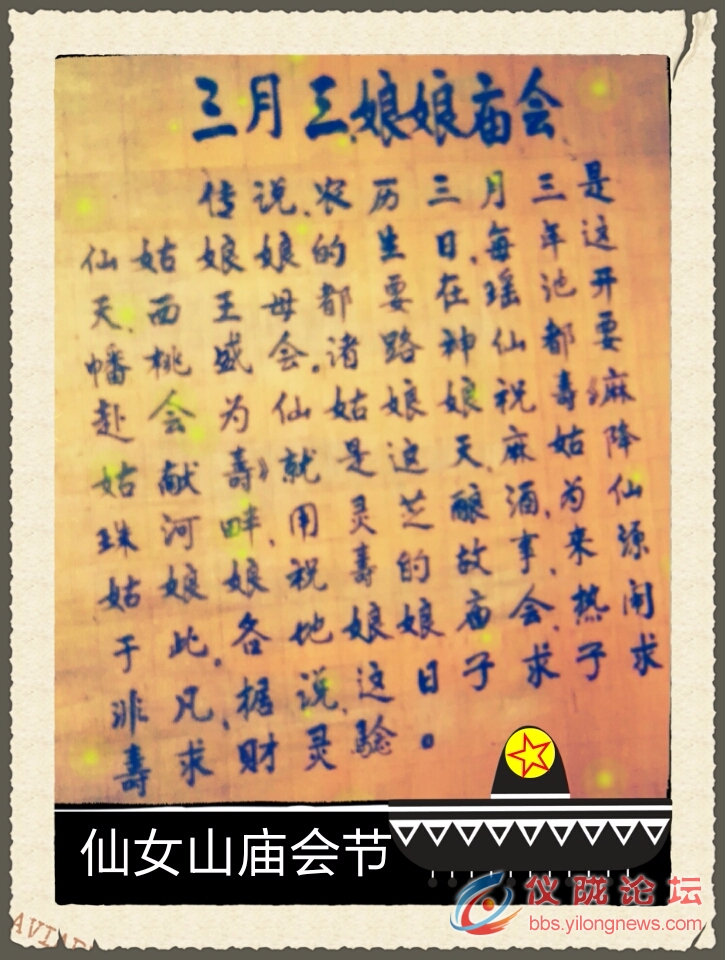 三月三娘娘庙会
传说、农历三月三是
仙姑娘娘的生日,每年这
天、西王母都要在瑶池开
幡桃盛会。诸路神仙都要
赴会为仙姑娘娘祝寿《麻
姑献寿》就是这天麻姑降
珠河畔,用灵芝酿酒,为仙
姑娘娘祝寿的故事,来源
于此。各地娘娘庙会热闹
非凡,据说,这日子求子求
寿求财灵验。
仙女山庙会节
仪陇论坛
bbs.yilongnews.com